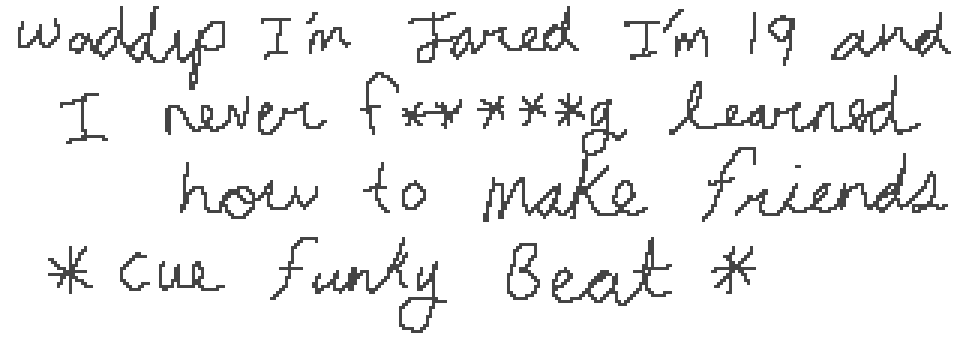 waddup I'm Jared I'm 19 and
I never f*****g learned
how to make friends
*Cue funky Beat *